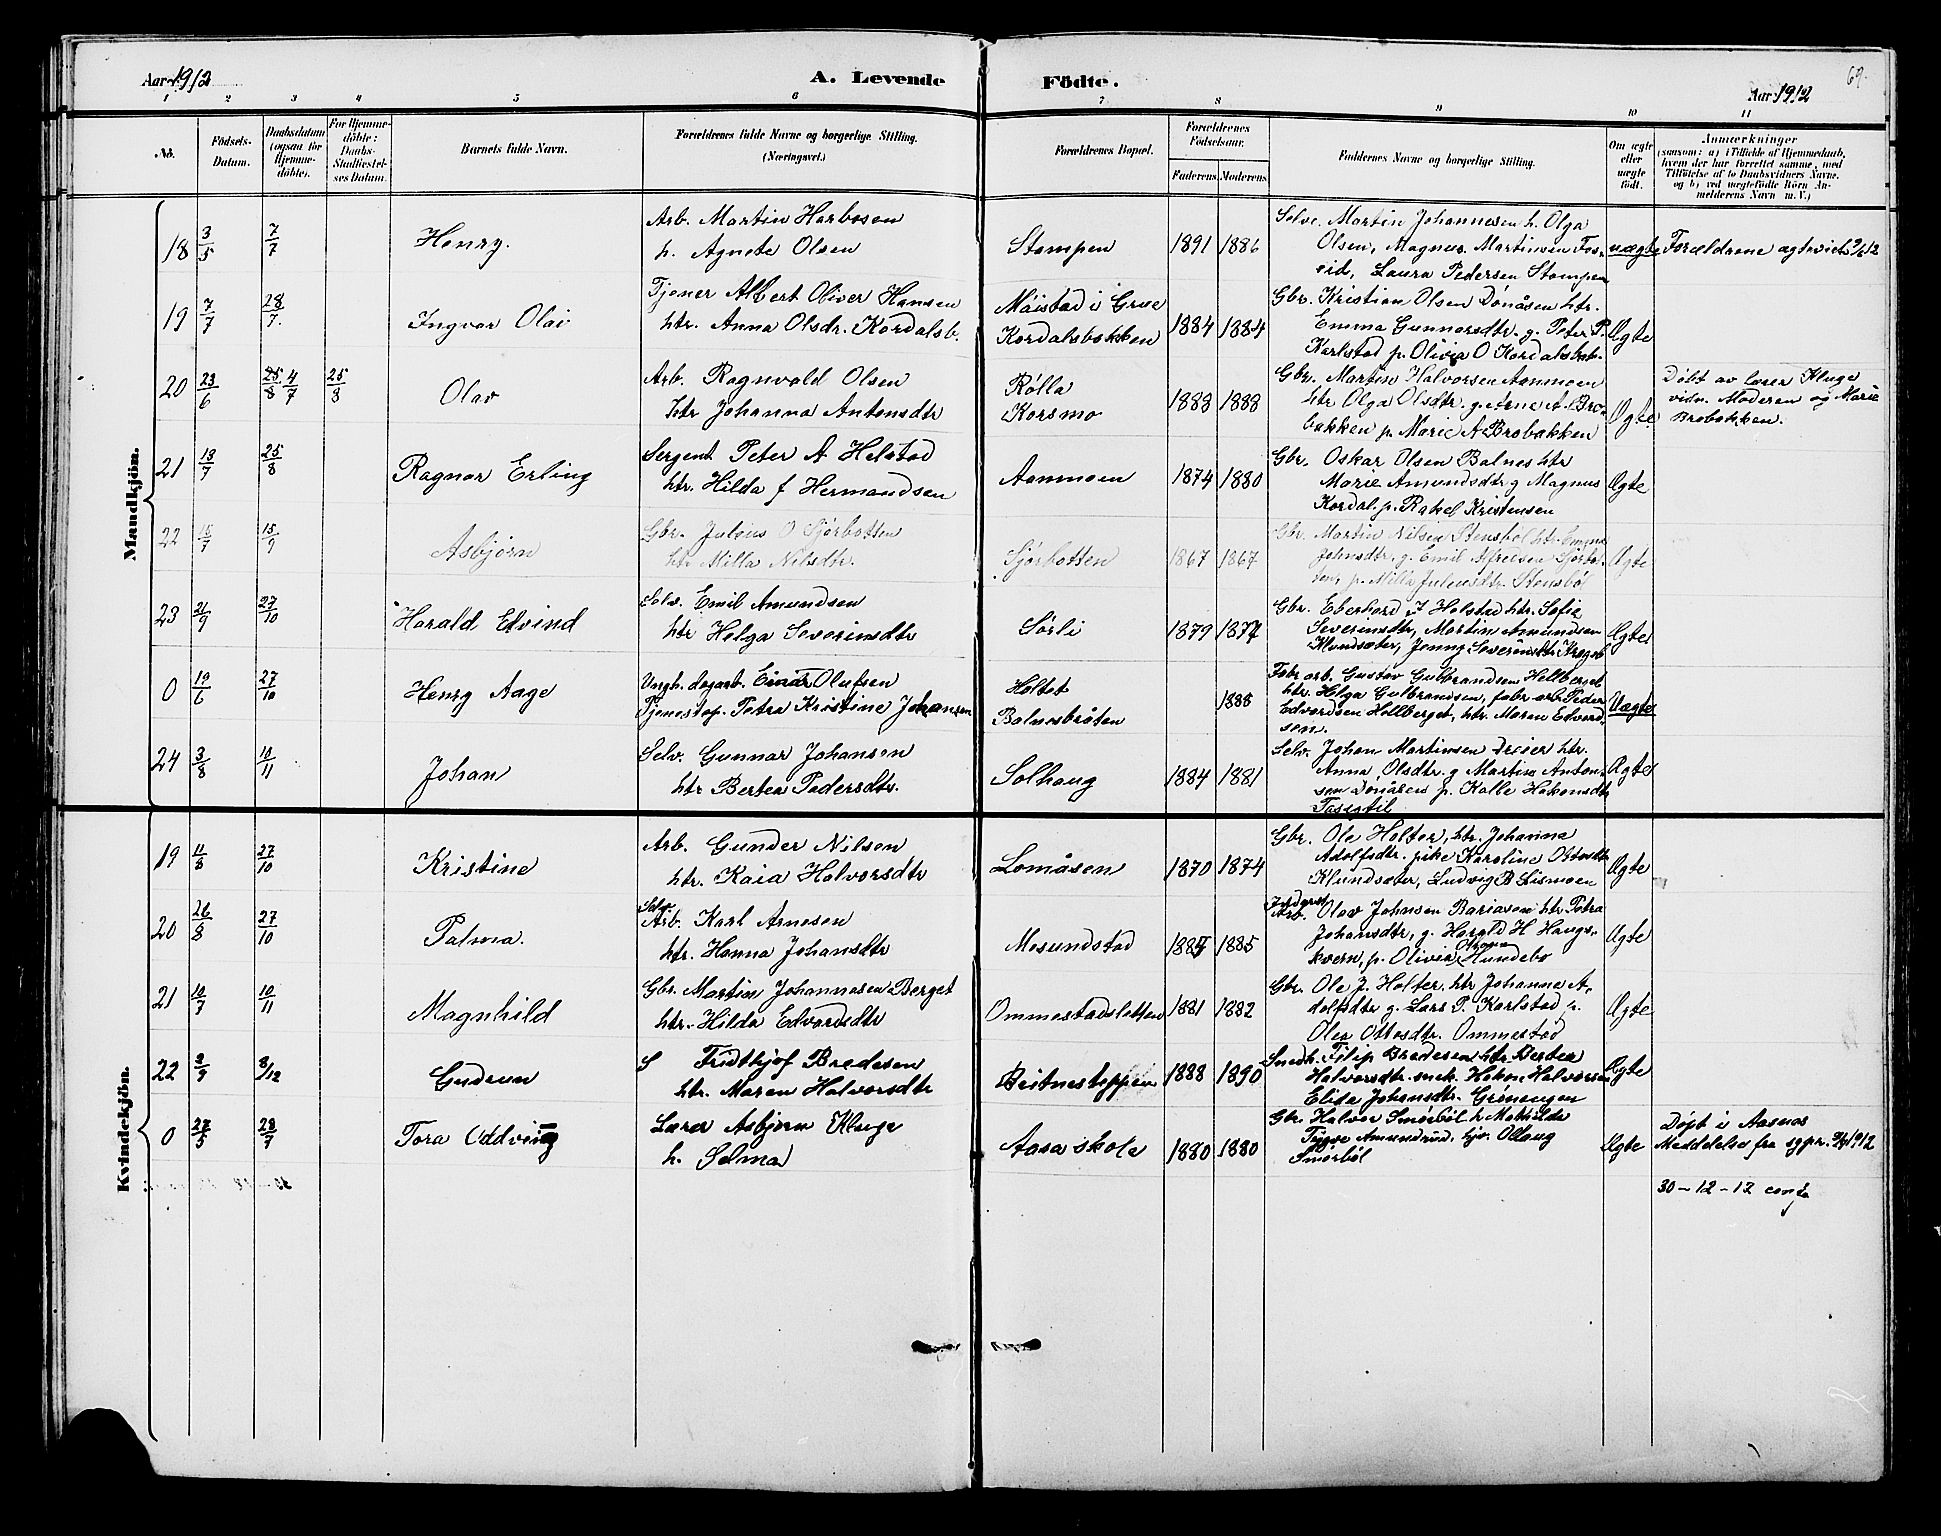 Aar 1912
A. Levende
Födte.
Aar 1912
69.
1 2 3 4 5 6 7 8 9 10 11
No.
Födsels-
Datum.
Daabsdatum
(ogsaa for
Hjemme-
döbte).
For Hjemme-
döbte:
Daabs-
Stadfæstel-
ses Datum.
Barnets fulde Navn.
Forældrenes fulde Navne og borgerlige Stilling.
(Næringsvei.)
Forældrenes Bopæl.
Forældrenes
Födselsaar.
Faderens. Moderens.
Faddernes Navne og borgerlige Stilling.
Om ægte
eller
uægte
födt.
Anmærkninger
(saasom: a) i Tilfælde af Hjemmedaab,
hvem der har forrettet samme, med
Tilföielse af to Daabsvidners Navne.
og b) ved uægtefödte Börn An-
melderens Navn m. V.)
Mandkjön.
18 3/5 7/7 Henry.
Arb. Martin Harbosen
h. Agnete Olsen
Stompen 1891 1886
Selve. Martin Johannesen h. Olga
Olsen, Magnus Martinsen Fos-
eid, Laura Pedersen Stompen
uægte Forældrene ægteviet
19 7/7 28/7. Ingvar Olai
Tjener Albert Oliver Hansen
htr. Anna Olsdr. Kordalsb.
Möistad i Grue
Kordalsbakken 1884 1884
Gbr. Kristian Olsen Dönåsen htr.
Emma Gunnarsdtr. g. Peter P.
Karlstad p. Olivia O Kordalsbak-
Ægte
20 23/6 25/8 4/7 25/8 Olav
Arb. Ragnvald Olsen
htr Johanna Antonsdtr
Rölla
Korsmo 1888 1888
Gbr. Martin Halvorsen Aanmoen
htr Olga Olsdtr. g. Arne A. Bro-
bakken p. Marie A Brobakken
Ægte
Döbt av lærer Kluge
vidn. Moderen og Marie
Brobakken.
21 13/7 25/8 Ragnar Erling
Sergent Peter A Helstad
htr. Hilda f Hermandsen
Aanmoen 1874 1880
Gbr. Oskar Olsen Balnes htr
Marie Amundsdtr. g Magnus
Kordal. p. Rakel Kristensen
Ægte
22 15/7 15/9 Asbjörn
Gbr. Julius O Sjörbotten
htr Milla Nilsdtr.
Sjörbotten 1867 1867
Gbr. Martin Nilsen Stensböl htr. Emma
Johnsdtr. g. Emil Alfredsen Sjörbot-
ten, p. Milla Juliusdtr. Stensböl
Ægte
23 21/9 27/10 Harald Edvind
Selv. Emil Amundsen
htr Helga Severinsdtr
Sörli 1879 1877
Gbr. Eberhard J Helstad htr. Sofie
Severinsdtr, Martin Amundsen
Klundsæter, Jenny Severinsdtr
Ægte
0 19/6 27/10 Henry Aage
Ungk. dagarb. Einar Olafsen
Tjenestep. Petra Kristine Johansen
Holtet
Balnesbråten 1888
Fabr arb. Gustav Gulbrandsen Hellberget
htr. Helga Gulbrandsen, fabr. arb. Peder
Edvardsen Hellberget, htr. Maren Edvard-
sen.
Uægte
24 3/8 10/11 Johan
Selv. Gunnar Johansen
htr Bertea Pedersdtr.
Solhaug 1884 1881
Selv. Johan Martinsen Dreier htr.
Anna Olsdtr. g Martin Anton-
sen Dönåsen p. Kalle Hakonsdtr
Ægte
Kvindekjön.
19 11/8 27/10 Kristine
Arb. Gunder Nilsen
htr. Kaia Halvorsdtr
Lomåsen 1870 1874
Gbr. Ole Holter, htr. Johanna
Adolfsdtr. pike Karoline
Klundsæter, Ludvig B Lismoen
Ægte
20 26/8 27/10 Palma.
Selv
Arb. Karl Arnesen
htr. Hanna Johansdtr
Mesundstad 1885 1885
Arb. Olav Johnsen Bariaasen htr Petra
Johansdtr, g. Harald H Haugs-
kvern, p. Olivia Hundebo
Ægte
21 10/7 10/11 Magnhild
Gbr. Martin Johannesen Berget
htr. Hilda Edvardsdtr
Ommestadsletten 1881 1882
Gbr. Ole J. Holter. htr Johanne A-
dolfsdtr g. Lars P. Karlstad p.
Olea Ottosdtr. Ommestad
Ægte
22 2/9 8/12 Gudrun
S Fridthjof Bredesen
htr. Maren Halvorsdtr
Beitnesteppen 1888 1890
Snedk. Filip Bredesen htr Bertea
Halvorsdtr. snek. Hakon Halvorsen
Elida Johansdtr. Gröneengen
Ægte
0 27/5 28/7 Tora Oddveig
Lærer Asbjörn Kluge
h. Selma
Aasa skole 1880 1880
Gbr Halvor Smörböl h Mathilde
Trygve Amundrud, hjv. Ollaug
Smörböl
Ægte
Döpt i Aasnes
Meddelelse fra sgpr. 1912
30-12-12 conf.